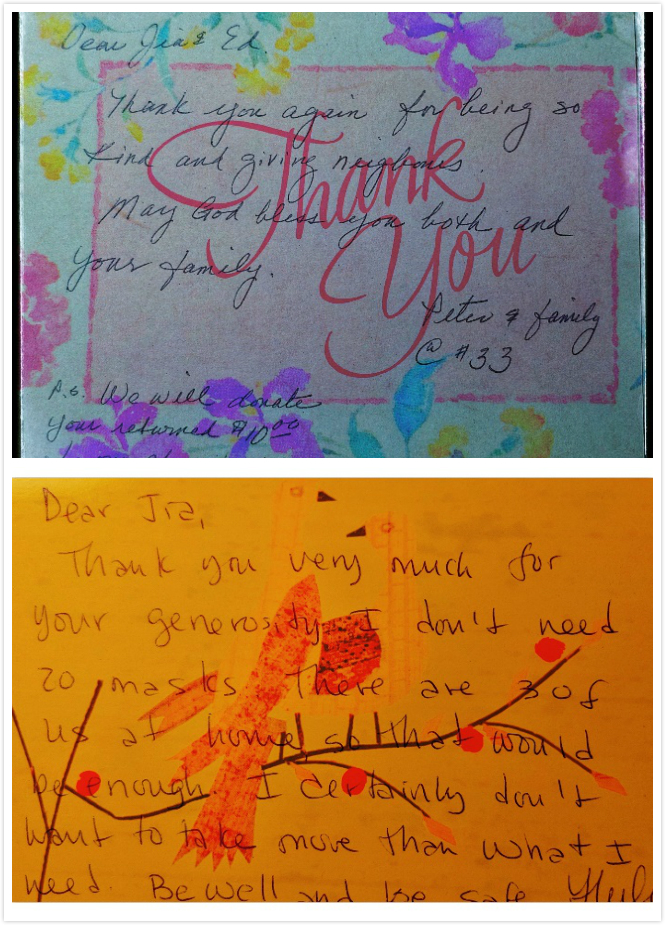 Dear Jia & Ed.
Thank you again for being so
kind and giving neighbours.
May God bless you both and
your family.
Peter & family
@ #33
P.S. We will donate
your returned $10.00
Thank
You
Dear Jia,
Thank you very much for
your generosity. I don't need
20 masks. There are 3 of
us at home so that would
be enough. I certainly don't
want to take more than what I
need. Be well and be safe.